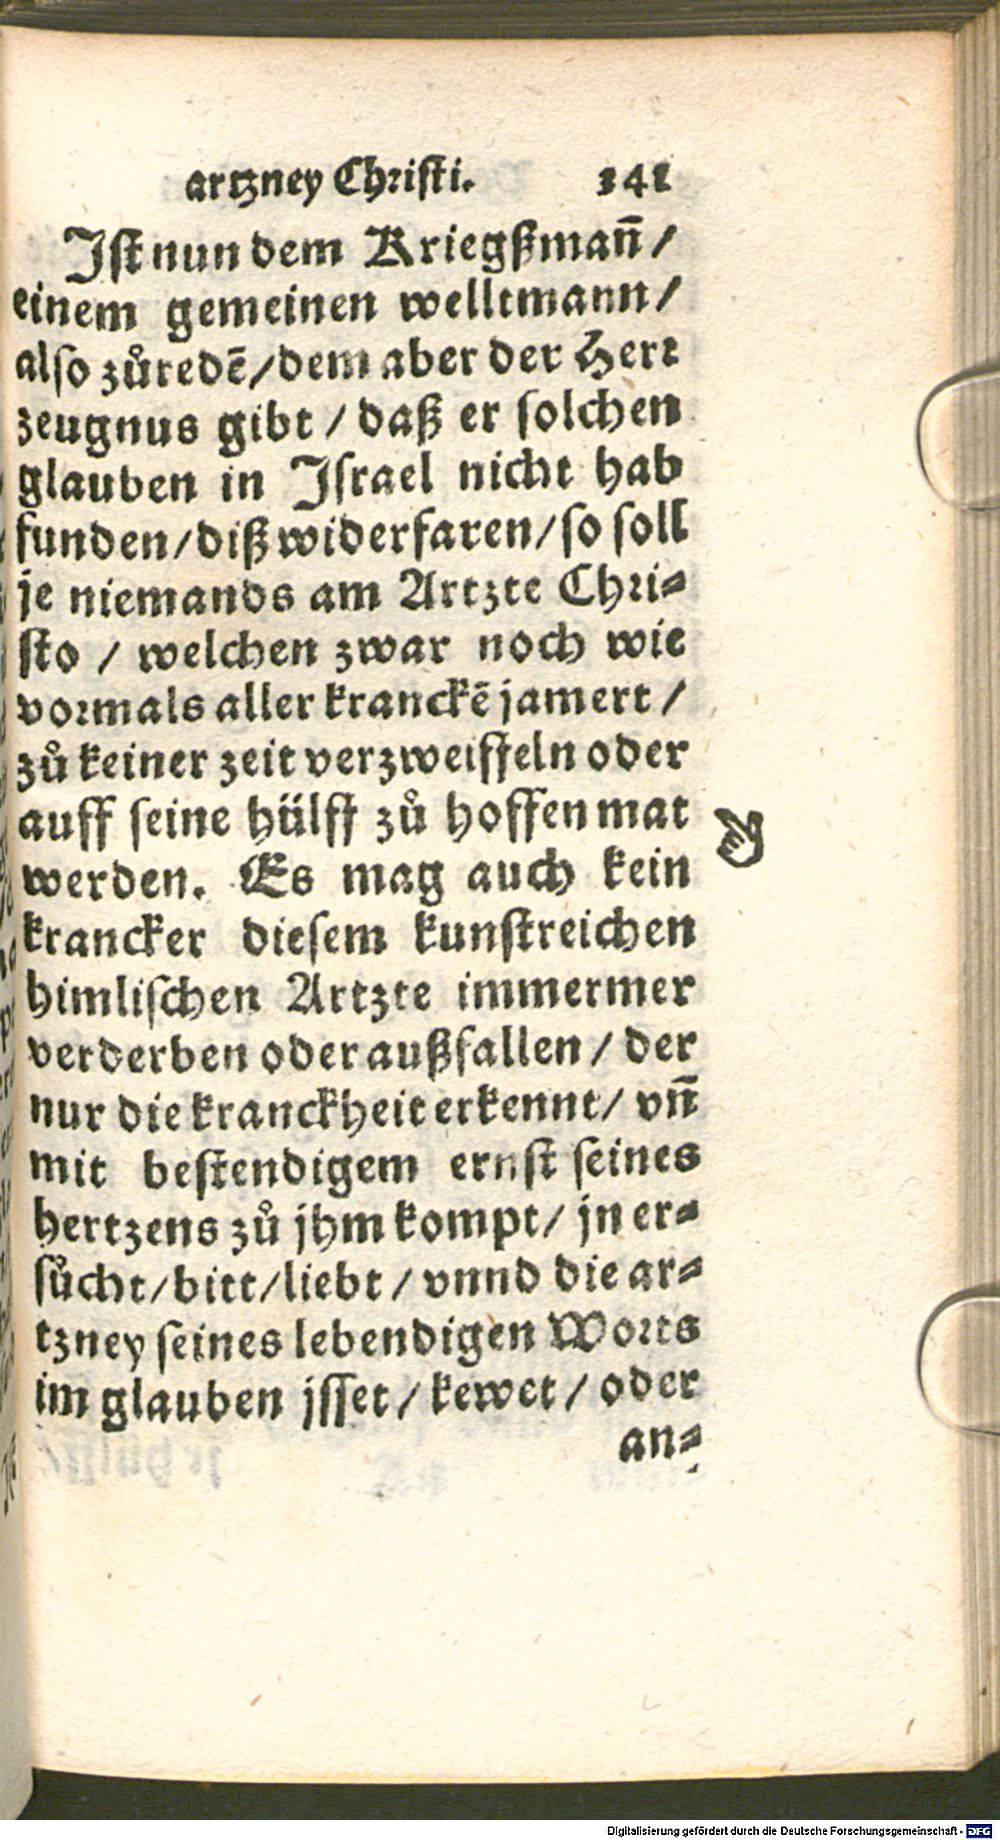 artzney Christi. 141
Ist nun dem Kriegßmañ /
einem gemeinen welltmann /
also zůredẽ / dem aber der Herr
zeugnus gibt / daß er solchen
glauben in Israel nicht hab
funden / diß widerfaren / so soll
je niemands am Artzte Chri⸗
sto / welchen zwar noch wie
vormals aller kranckẽ jamert /
zů keiner zeit verzweiffeln oder
auff seine hülff zů hoffen mat
werden. Es mag auch kein
krancker diesem kunstreichen
himlischen Artzte immermer
verderben oder außfallen / der
nur die kranckheit erkennt / vñ
mit bestendigem ernst seines
hertzens zů jhm kompt / jn er⸗
sůcht / bitt / liebt / vnnd die ar⸗
tzney seines lebendigen Worts
im glauben jsset / kewet / oder
an⸗
Digitalisierung gefördert durch die Deutsche Forschungsgemeinschaft - DFG